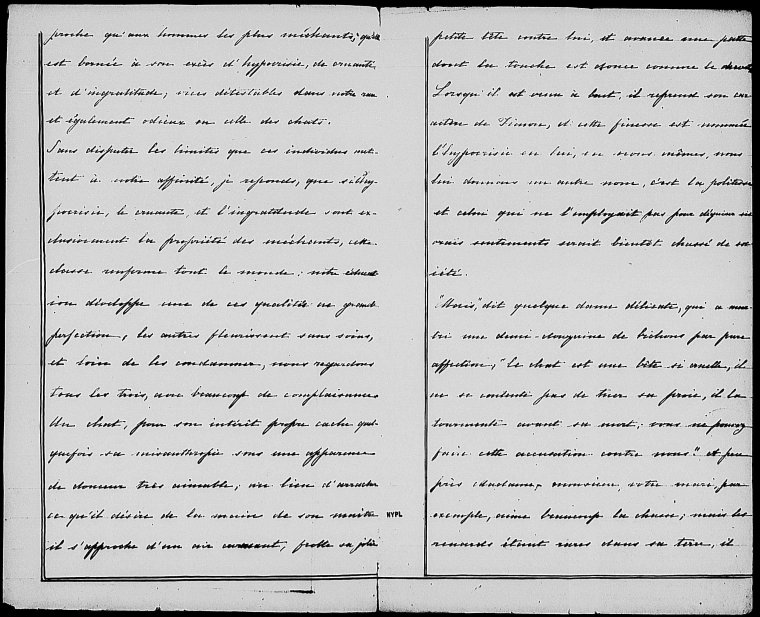 proche qu'aux hommes les plus méchants, qu'elle
est bornée à son excès d'hypocrisie, de cruauté
et d'ingratitude; vices détestables dans notre race
et également odieux en celle des chats.
Sans disputer les limites que ces individus met-
tent à notre affinité, je reponds, que si l'hy-
pocrisie, le cruauté, et l'ingratitude sont ex-
clusivement la propriété des méchants, cette
classe renferme tout le monde; notre éducat
ion développe une de ces qualités en grande
perfection, les autres fleurissent sans soins,
et loin de les condamner, nous regardons
tous les trois, avec beaucoup de complaisance
Un chat, pour son intérêt propre cache quel-
quefois sa misanthropie sous une apparence
de douceur très aimable; au lieu d'arracher
ce qu'il désire de la main de son maître
il s'approche d'un air caressant, frotte sa jolie
NYPL
petite tête contre lui, et avance une patte
dont la touche est douce comme le duvet
Lorsqu'il est venu à bout, il reprend son car
actère de Timon, et cette finesse est nommée
l'hypocrisie en lui, en nous mêmes, nous
lui donnons un autre nom, c'est la politesse
et celui qui ne l'employait pas pour déguiser ses
vrais sentiments serait bientôt chassé de so-
ciété.
"Mais," dit quelque dame délicate, qui a meur-
tri une demi-douzaine de bichons par pure
affection, "le chat est une bête si cruelle, il
ne se contente pas de tuer sa proie, il la
tourmente avant sa mort; vous ne pouvez
faire cette accusation contre nous." A peu
près Madame, monsieur, votre mari, par
exemple, aime beaucoup la chasse; mais les
renards étant rares dans sa terre, il